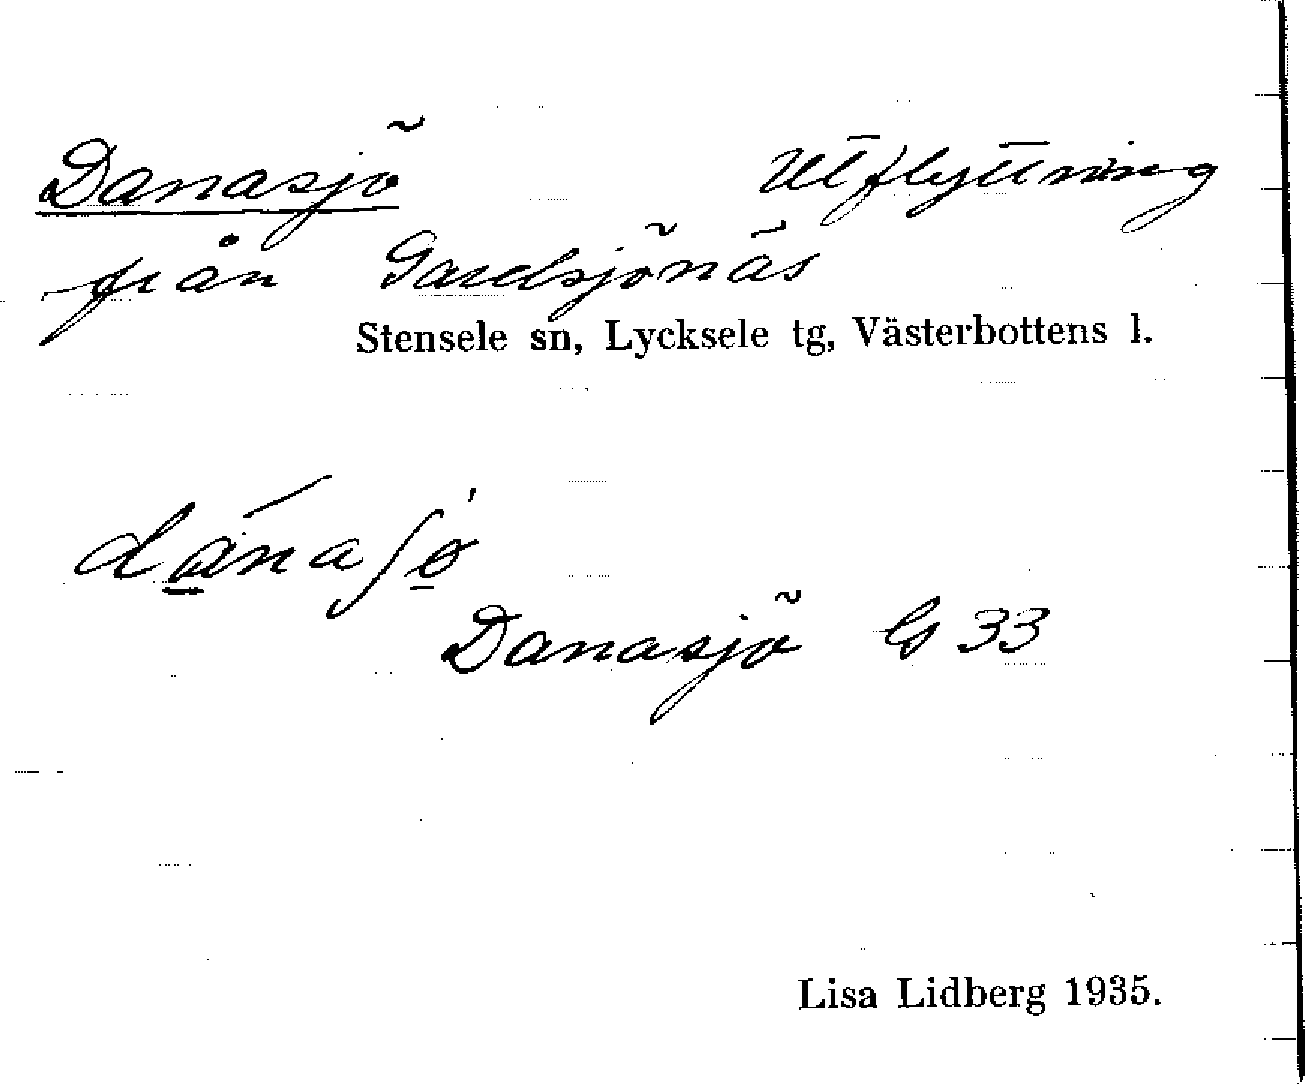 Danasjö Utflyttning
från Gardsjönäs
Stensele sn, Lycksele tg, Västerbottens l.
dánaʃø̱̀
Danasjö G 33
Lisa Lidberg 1935.